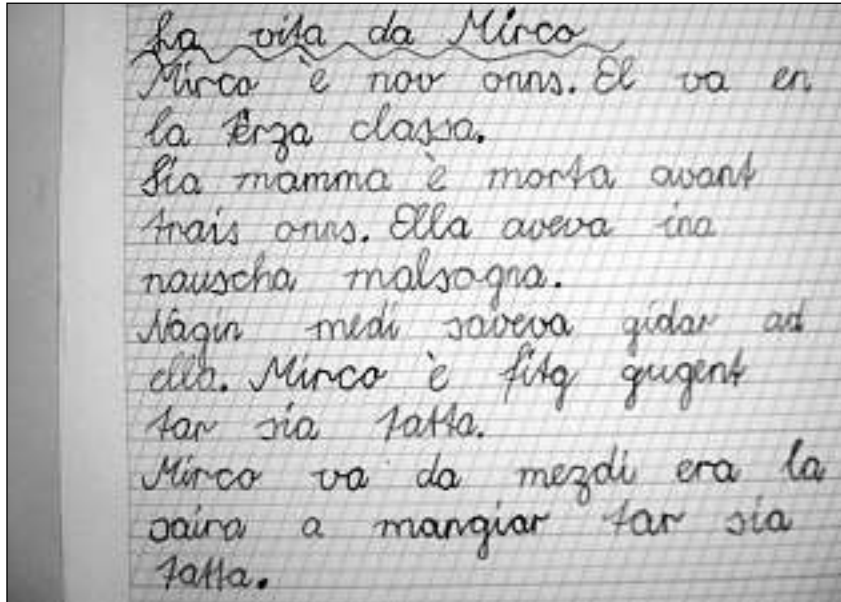 La vita da Mirco
Mirco è nov onns. El va en
la terza classa.
Sia mamma è morta avant
trais onns. Ella aveva ina
nauscha malsogna.
Nagin medi saveva gidar ad
ella. Mirco è fitg gugent
tar sia tatta.
Mirco va da mezdi era la
saira a mangiar tar sia
tatta.